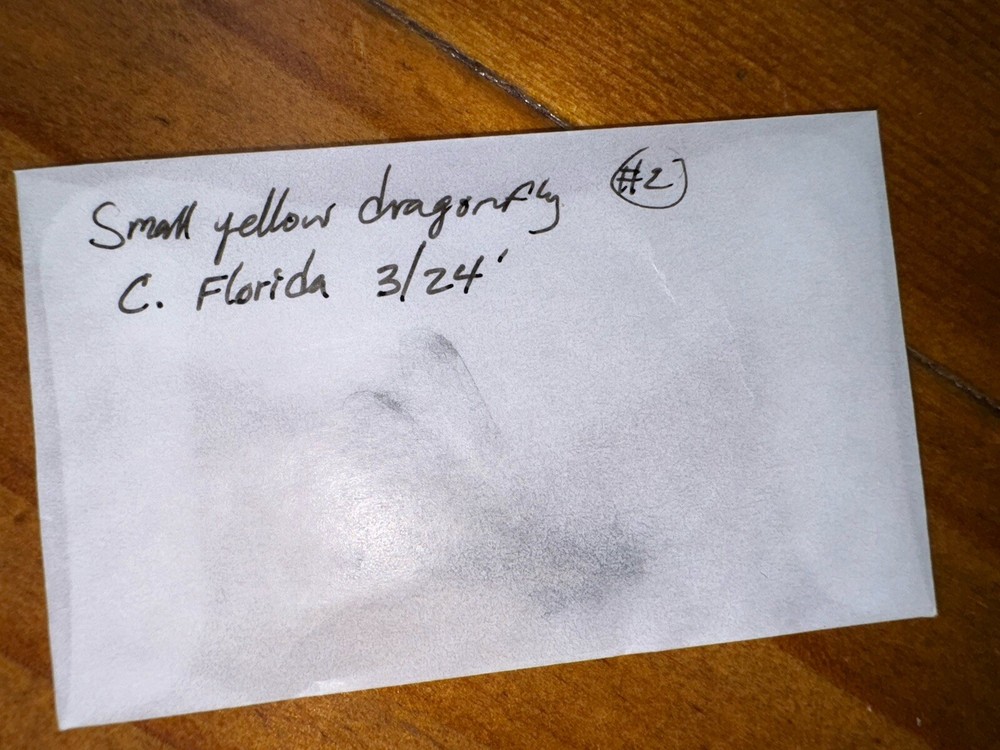 Small yellow dragonfly #2
C. Florida 3/24'